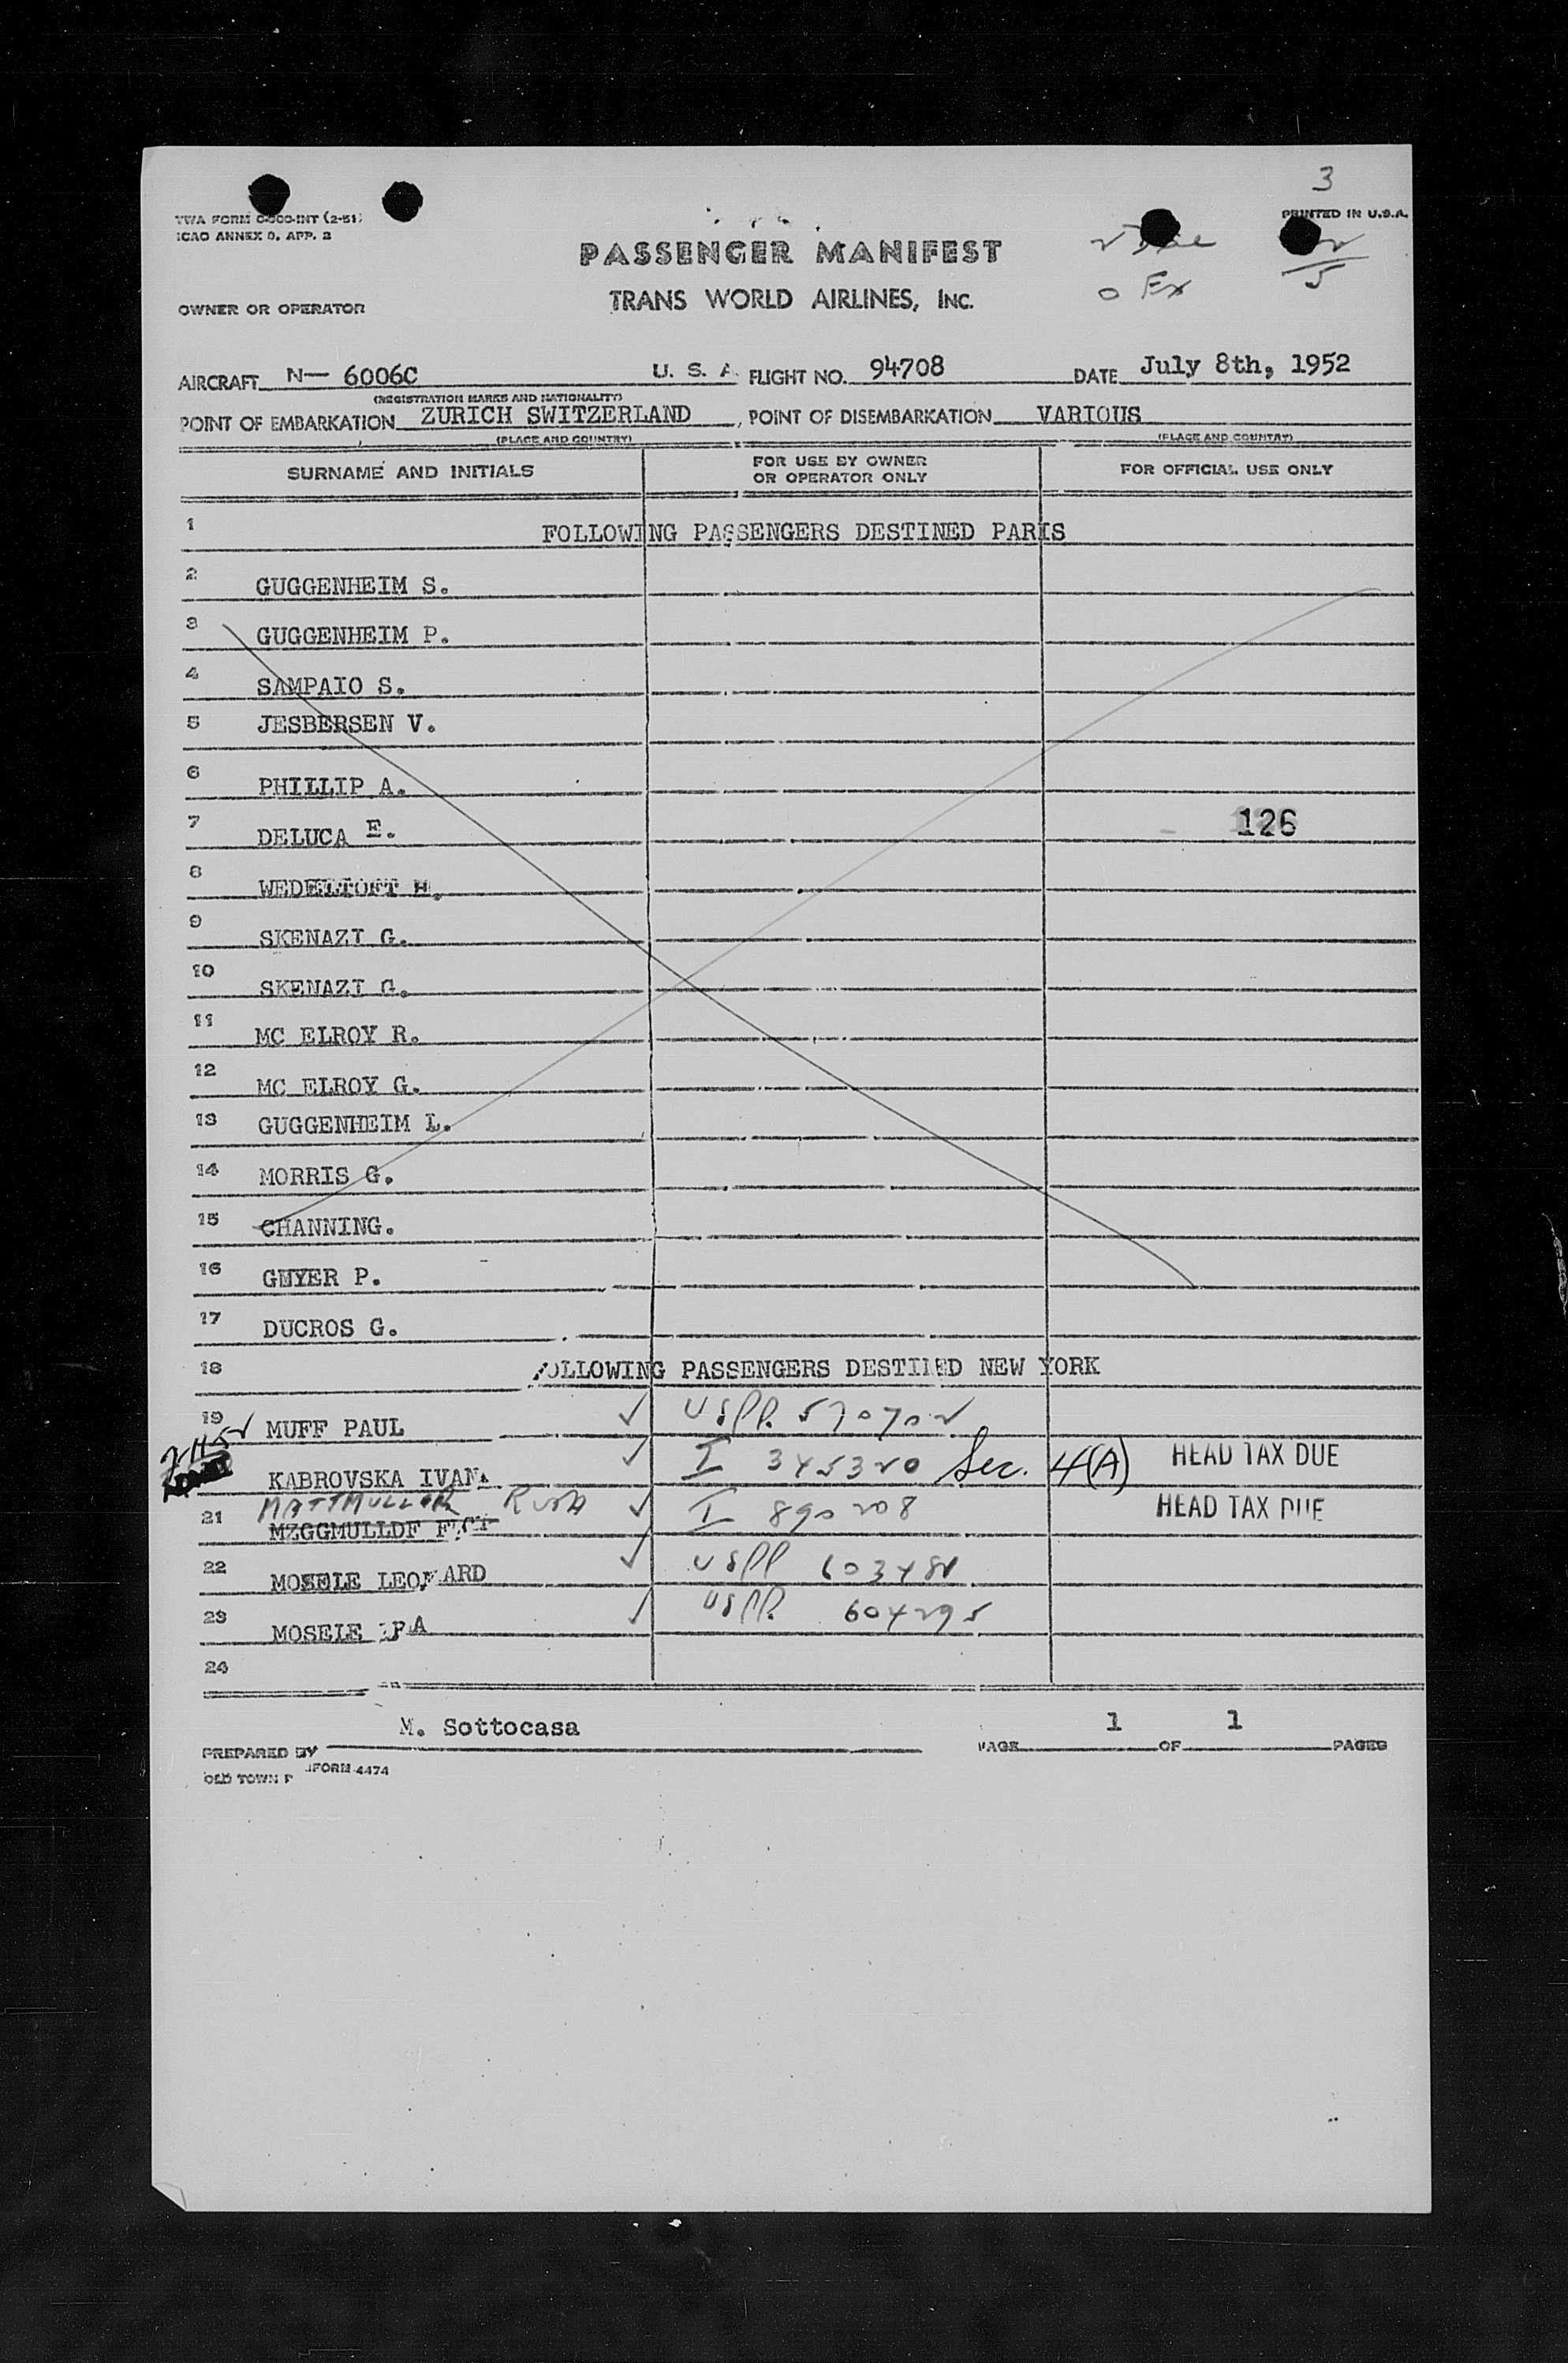 3
TWA FORM (2-51)
ICAO ANNEX 9, APP. 2
PRINTED IN U.S.A.
PASSENGER MANIFEST
TRANS WORLD AIRLINES, INC.
0 Ex
5
OWNER OR OPERATOR
AIRCRAFT N— 6006C U. S. A. FLIGHT NO. 94708 DATE July 8th, 1952
(REGISTRATION MARKS AND NATIONALITY)
POINT OF EMBARKATION ZURICH SWITZERLAND, POINT OF DISEMBARKATION VARIOUS
(PLACE AND COUNTRY) (PLACE AND COUNTRY)
SURNAME AND INITIALS FOR USE BY OWNER OR OPERATOR ONLY FOR OFFICIAL USE ONLY
1 FOLLOWING PASSENGERS DESTINED PARIS
2 GUGGENHEIM S.
3 GUGGENHEIM P.
4 SAMPAIO S.
5 JESBERSEN V.
6 PHILLIP A.
7 DELUCA E. 126
8 WEDELTOFT H.
9 SKENAZI G.
10 SKENAZI G.
11 MC ELROY R.
12 MC ELROY G.
13 GUGGENHEIM L.
14 MORRIS G.
15 CHANNING.
16 GMYER P.
17 DUCROS G.
18 FOLLOWING PASSENGERS DESTINED NEW YORK
19 MUFF PAUL ✓ USPP. 570702
KABROVSKA IVAN ✓ I 345320 Sec. 4(A) HEAD TAX DUE
MATTMULLER RUTH
21 MZGGMULLDF ✓ I 890208 HEAD TAX DUE
22 MOSELE LEONARD ✓ USPP 60348
23 MOSELE ✓ USPP. 604295
24
M. Sottocasa 1 1
PREPARED BY PAGE OF PAGES
OLD TOWN FORM 4474